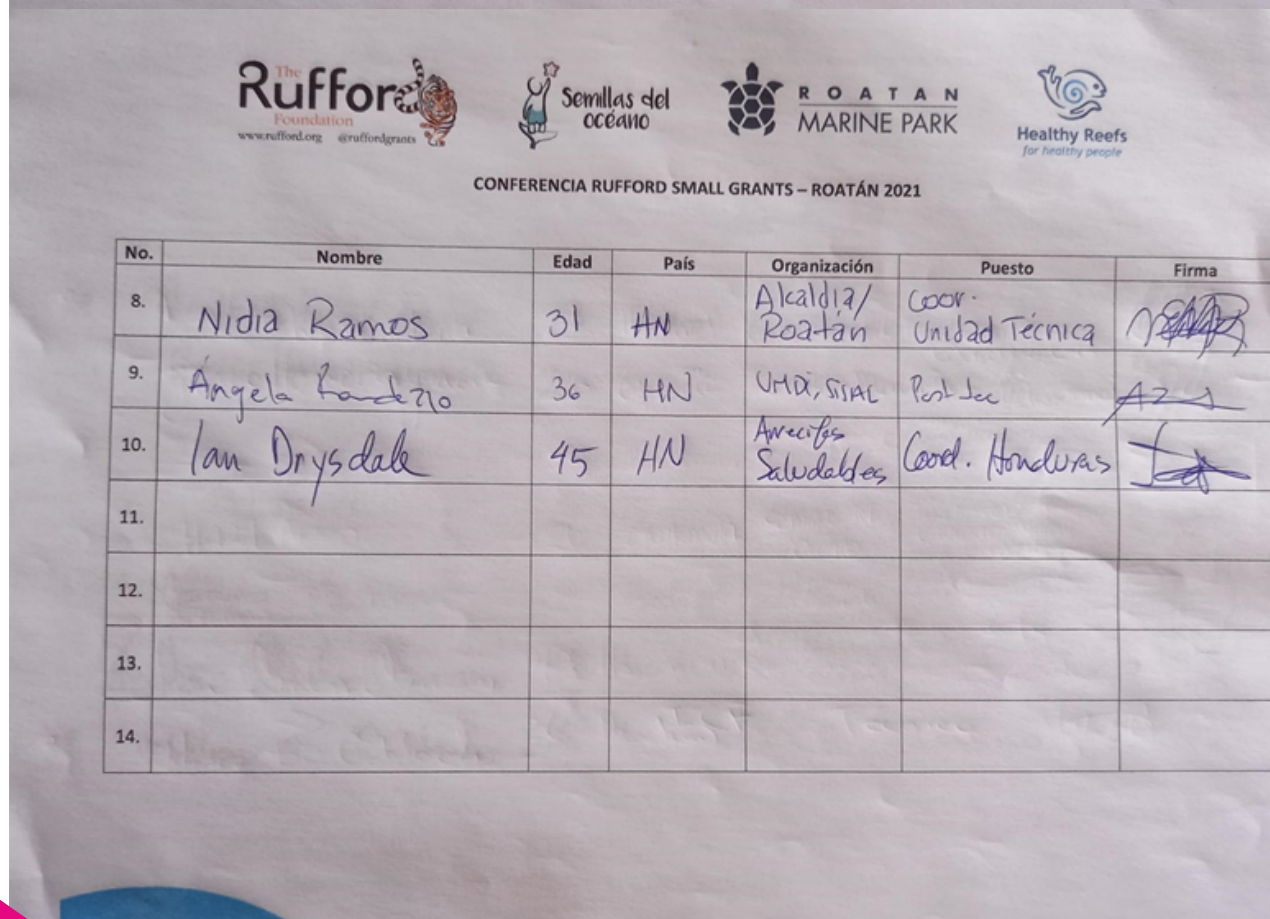 The
Rufford
Foundation
www.rufford.org @ruffordgrants
Semillas del
océano
ROATAN
MARINE PARK
Healthy Reefs
for healthy people
CONFERENCIA RUFFORD SMALL GRANTS – ROATÁN 2021
No. Nombre Edad País Organización Puesto Firma
8. Nidia Ramos 31 HN Alcaldía/ Roatán Coor. Unidad Técnica
9. Ángela 36 HN
10. Ian Drysdale 45 HN Arrecifes Saludables Coord. Honduras
11.
12.
13.
14.